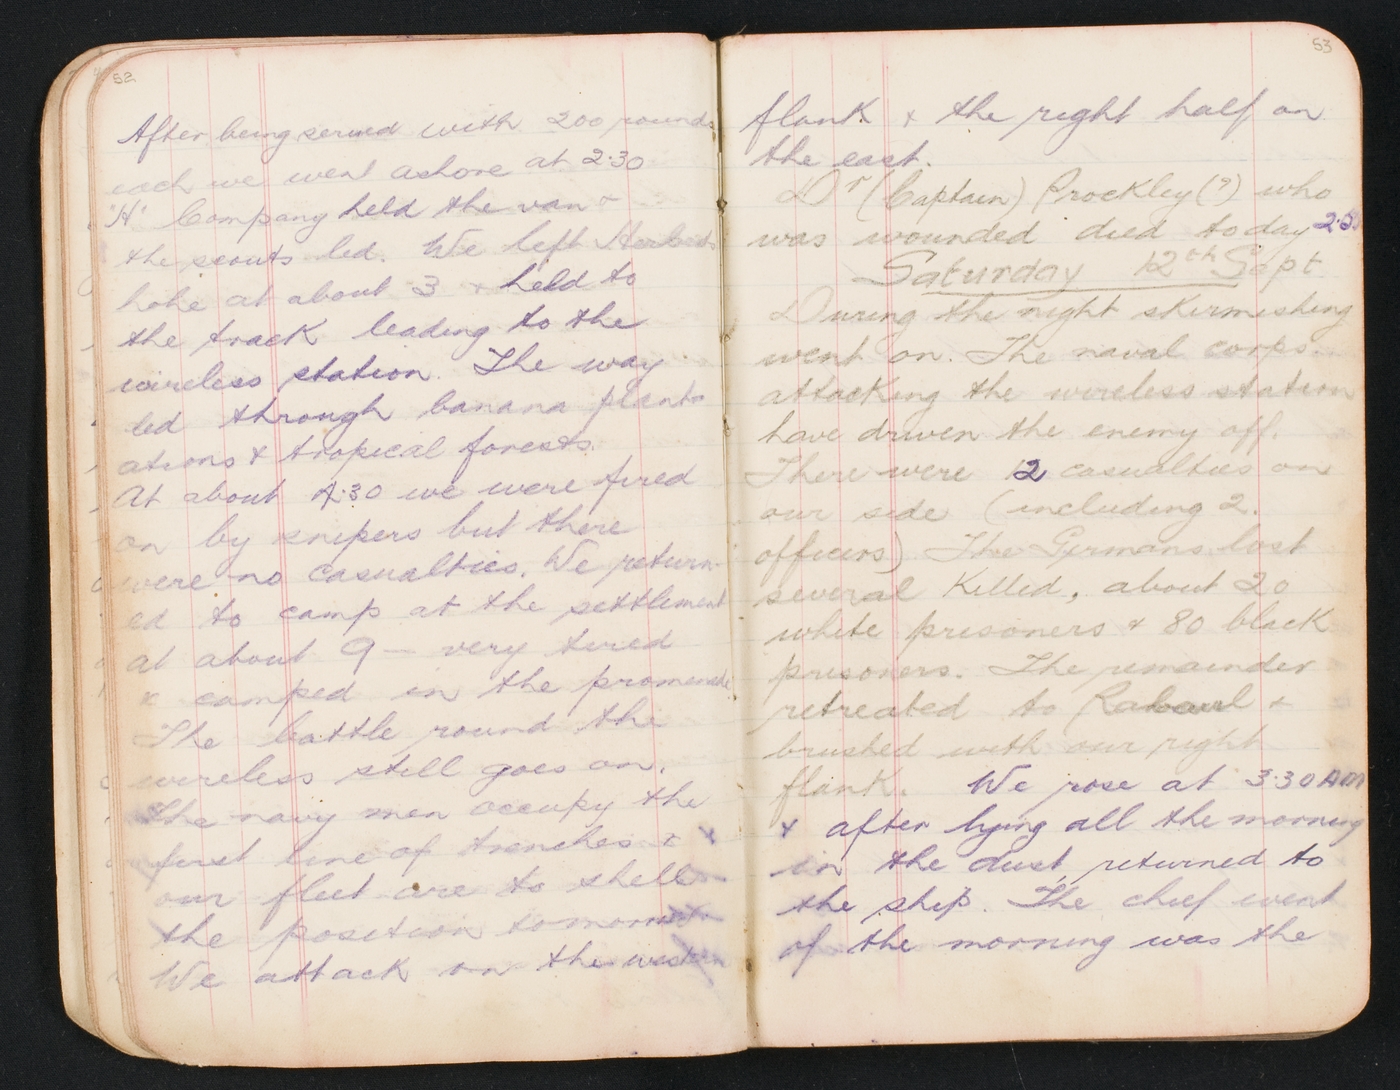 52
After being served with 200 rounds
each we went ashore at 2.30
"H" Company held the van &
the scouts led. We left Herberts
hohe at about 3 & held to
the track leading to the
wireless station. The way
led through banana planta
ations & tropical forests.
At about 4.30 we were fired
on by snipers but there
were no casualties. We return-
ed to camp at the settlement
at about 9 — very tired
& camped in the promenade
The battle round the
wireless still goes on.
The navy men occupy the
first line of trenches &
our fleet are to shell
the position tomorrow
We attack on the western
53
flank & the right half on
the east.
Dr (Captain) Prockley(?) who
was wounded died today
Saturday 12th Sept
During the night skirmishing
went on. The naval corps
attacking the wireless station
have driven the enemy off.
There were 12 casualties on
our side (including 2.
officers) The Germans lost
several killed, about 20
white prisoners & 80 black
prisoners. The remainder
retreated to Rabaul &
brushed with our right
flank. We rose at 3.30 AM
& after lying all the morning
in the dust, returned to
the ship. The chief went
of the morning was the